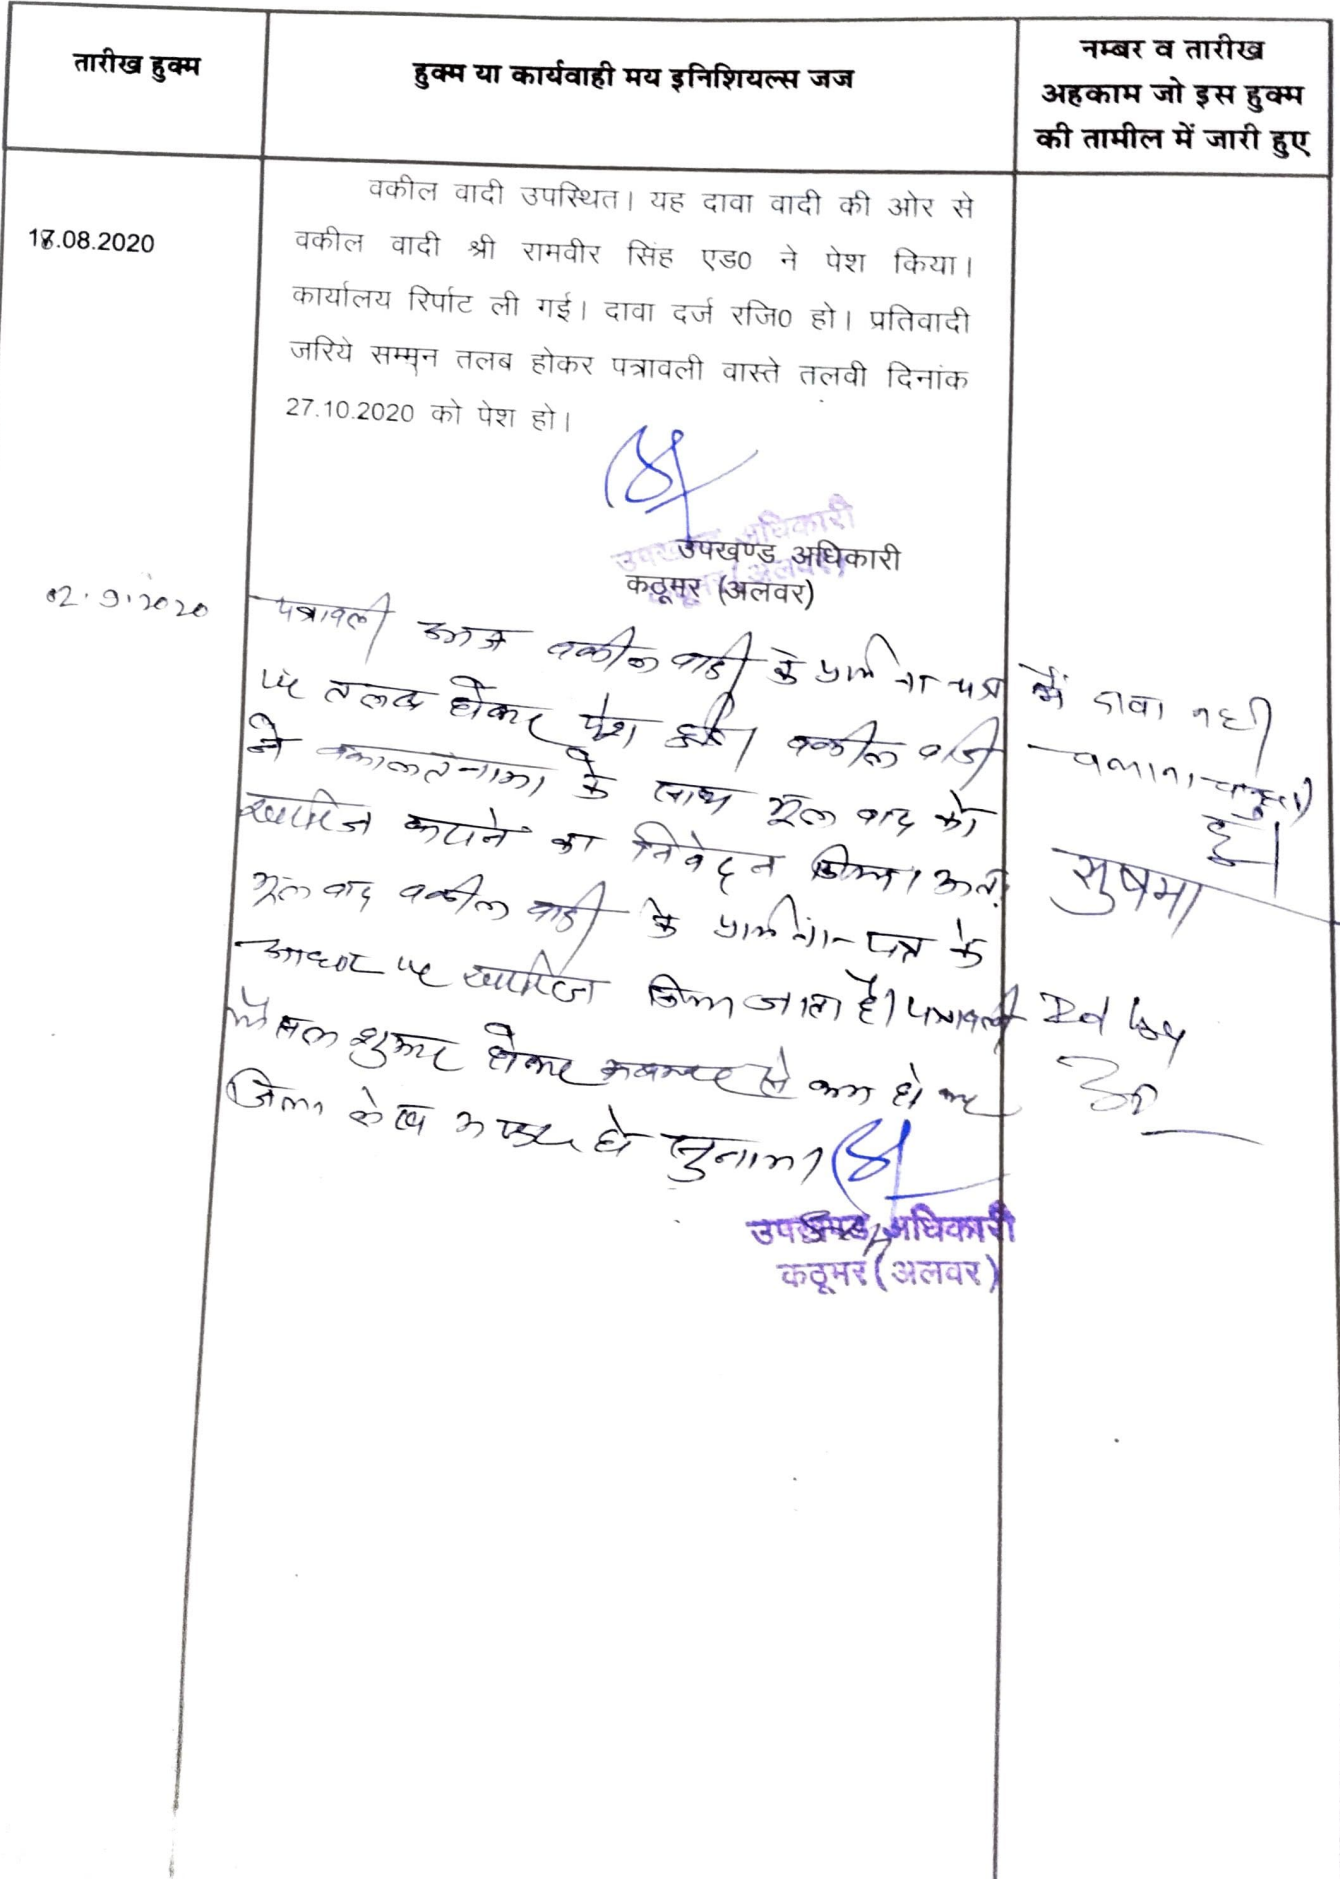 तारीख हुक्म
हुक्म या कार्यवाही मय इनिशियल्स जज
नम्बर व तारीख
अहकाम जो इस हुक्म
की तामील में जारी हुए
.08.2020
वकील वादी उपस्थित। यह दावा वादी की ओर से
वकील वादी श्री रामवीर सिंह एड0 ने पेश किया।
कार्यालय रिर्पाट ली गई। दावा दर्ज रजि0 हो। प्रतिवादी
जरिये सम्मन तलब होकर पत्रावली वास्ते तलवी दिनांक
27.10.2020 को पेश हो।
उपखण्ड अधिकारी
कठूमर (अलवर)
उपखण्ड अधिकारी
कठूमर (अलवर)
02.9.2020
पत्रावली आज वकील वादी के प्रार्थना पत्र
पर तलब होकर पेश हुई। वकील वादी
ने वकालतनामा के साथ मूल वाद को
खारिज कराने का निवेदन किया। अतः
मूल वाद वकील वादी के प्रार्थना-पत्र के
आधार पर खारिज किया जाता है। पत्रावली
फैसल शुमार होकर नम्बर से कम हो कर
हो सुनाया
उपखण्ड अधिकारी
कठूमर (अलवर)
में दावा नही
चलाना चाहती
हूँ।
सुषमा